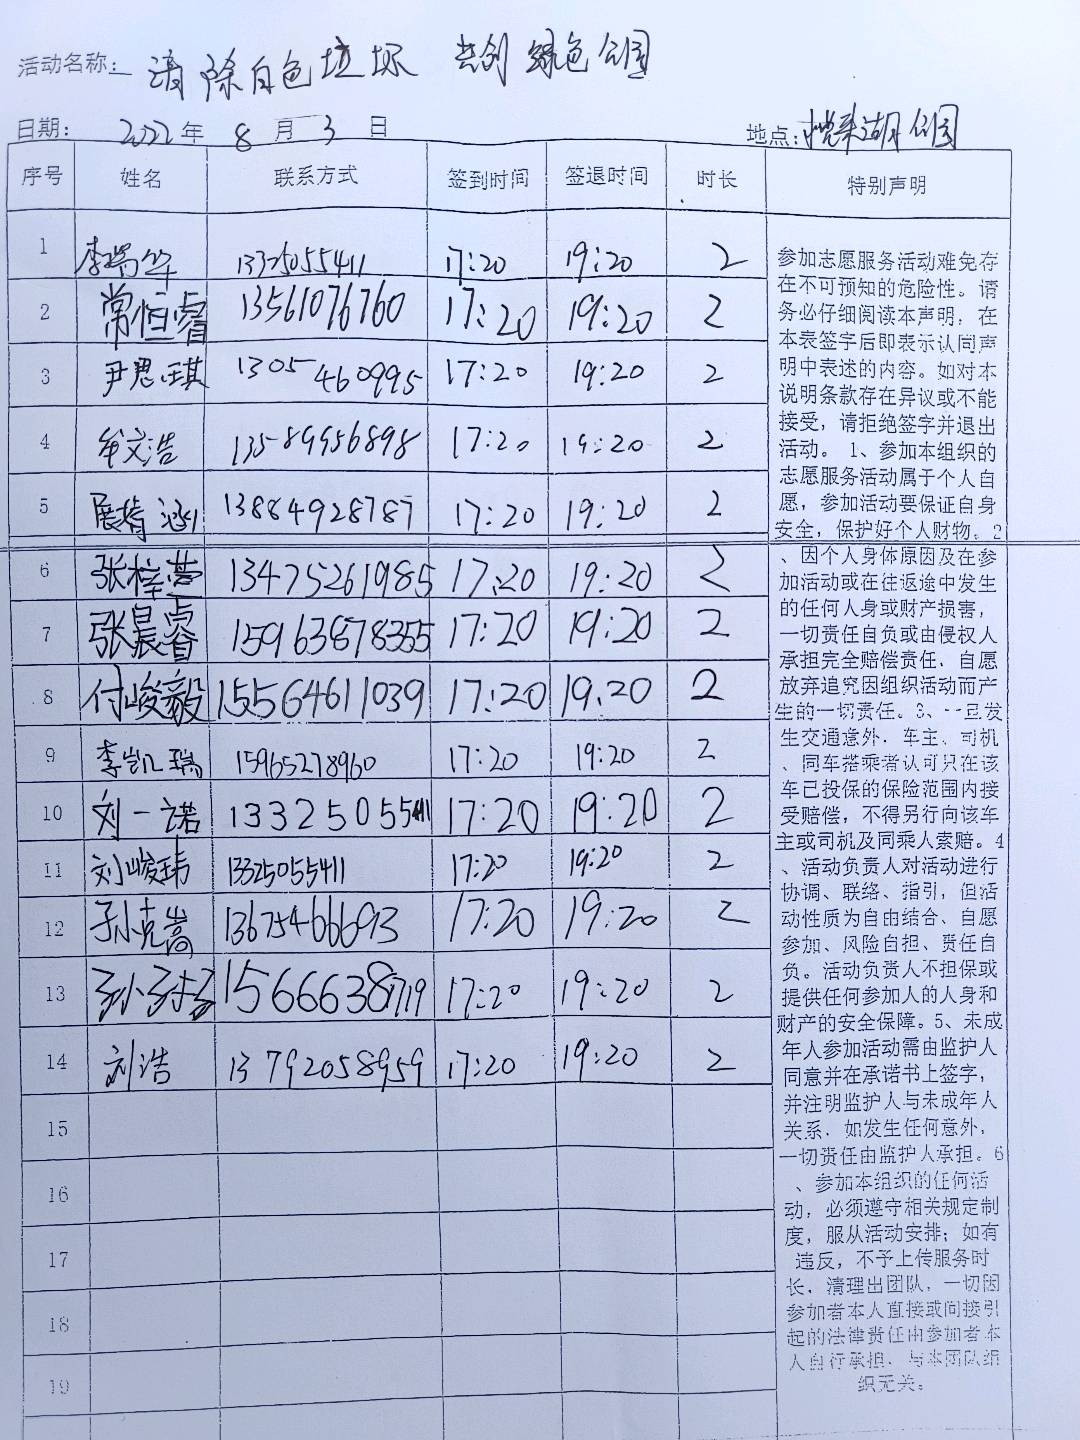 活动名称： 清除白色垃圾 共创绿色公园
日期： 2022年 8 月 3 日
地点： 湖公园
序号 姓名 联系方式 签到时间 签退时间 时长 特别声明
1 李瑞华 13325055411 17:20 19:20 2
2 常恒睿 13561076760 17:20 19:20 2
3 尹思琪 1305 460995 17:20 19:20 2
4 牟文浩 13589956898 17:20 19:20 2
5 展脩涵 13884928787 17:20 19:20 2
6 张梓萱 13475261985 17:20 19:20 2
7 张晨睿 15963878355 17:20 19:20 2
8 付峻毅 15564611039 17:20 19:20 2
9 李凯瑞 15965278960 17:20 19:20 2
10 刘一诺 13325055411 17:20 19:20 2
11 刘峻玮 13325055411 17:20 19:20 2
12 孙克嵩 13675466693 17:20 19:20 2
13 孙 15666638719 17:20 19:20 2
14 刘浩 13792058959 17:20 19:20 2
15
16
17
18
19
参加志愿服务活动难免存
在不可预知的危险性。请
务必仔细阅读本声明，在
本表签字后即表示认同声
明中表述的内容。如对本
说明条款存在异议或不能
接受，请拒绝签字并退出
活动。 1、参加本组织的
志愿服务活动属于个人自
愿，参加活动要保证自身
安全，保护好个人财物。2
、因个人身体原因及在参
加活动或在往返途中发生
的任何人身或财产损害，
一切责任自负或由侵权人
承担完全赔偿责任，自愿
放弃追究因组织活动而产
生的一切责任。3、一旦发
生交通意外，车主、司机
、同车搭乘者认可只在该
车已投保的保险范围内接
受赔偿，不得另行向该车
主或司机及同乘人索赔。4
、活动负责人对活动进行
协调、联络、指引，但活
动性质为自由结合、自愿
参加、风险自担、责任自
负。活动负责人不担保或
提供任何参加人的人身和
财产的安全保障。5、未成
年人参加活动需由监护人
同意并在承诺书上签字，
并注明监护人与未成年人
关系，如发生任何意外，
一切责任由监护人承担。6
、参加本组织的任何活
动，必须遵守相关规定制
度，服从活动安排；如有
违反，不予上传服务时
长，清理出团队，一切因
参加者本人直接或间接引
起的法律责任由参加者本
人自行承担，与本团队组
织无关。